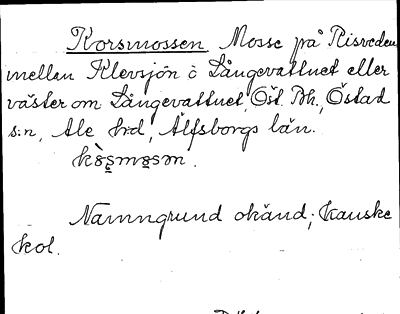 Korsmossen Mosse på Risveden
mellan Klevsjön o Långevattnet eller
väster om Långevattnet, Öst. Bh., Östad
s:n, Ale h:d, Älfsborgs län.
Namngrund okänd; kanske
kol.